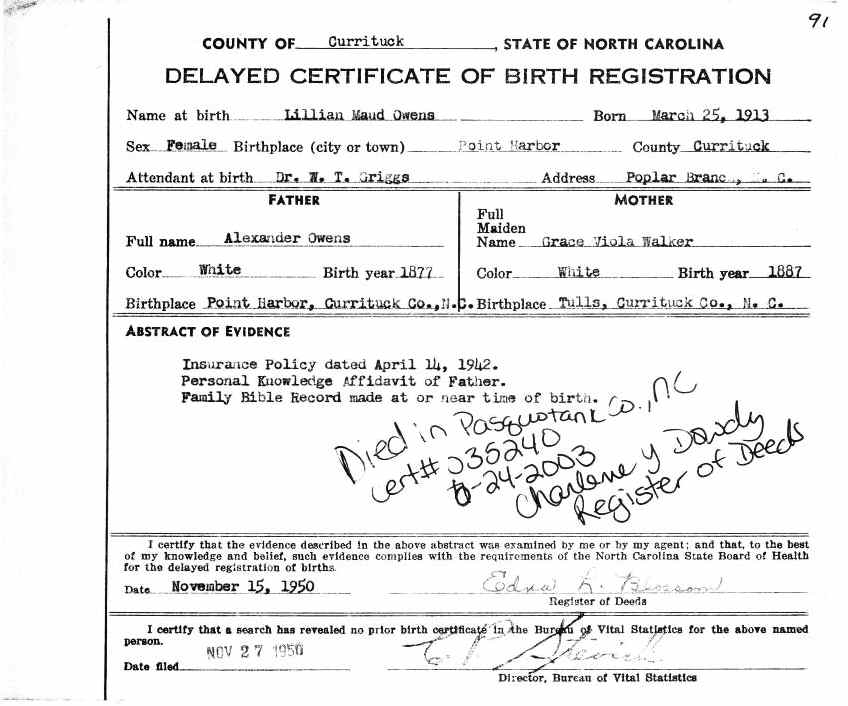 91
COUNTY OF Currituck, STATE OF NORTH CAROLINA
DELAYED CERTIFICATE OF BIRTH REGISTRATION
Name at birth Lillian Maud Owens Born March 25, 1913
Sex Female Birthplace (city or town) Point Harbor County Currituck
Attendant at birth Dr. W. T. Griggs Address Poplar Branch, N. C.
FATHER
Full name Alexander Owens
Color White Birth year 1877
Birthplace Point Harbor, Currituck Co., N.C.
MOTHER
Full
Maiden
Name Grace Viola Walker
Color White Birth year 1887
Birthplace Tulls, Currituck Co., N. C.
ABSTRACT OF EVIDENCE
Insurance Policy dated April 14, 1942.
Personal Knowledge Affidavit of Father.
Family Bible Record made at or near time of birth.
Died in Pasquotank Co., NC
cert# 035240
-24-2003
Charlene y Dowdy
Register of Deeds
I certify that the evidence described in the above abstract was examined by me or by my agent; and that, to the best
of my knowledge and belief, such evidence complies with the requirements of the North Carolina State Board of Health
for the delayed registration of births.
Date November 15, 1950 Edna L. Blossom
Register of Deeds
I certify that a search has revealed no prior birth certificate in the Bureau of Vital Statistics for the above named
person.
NOV 27 1950
Date filed
Director, Bureau of Vital Statistics